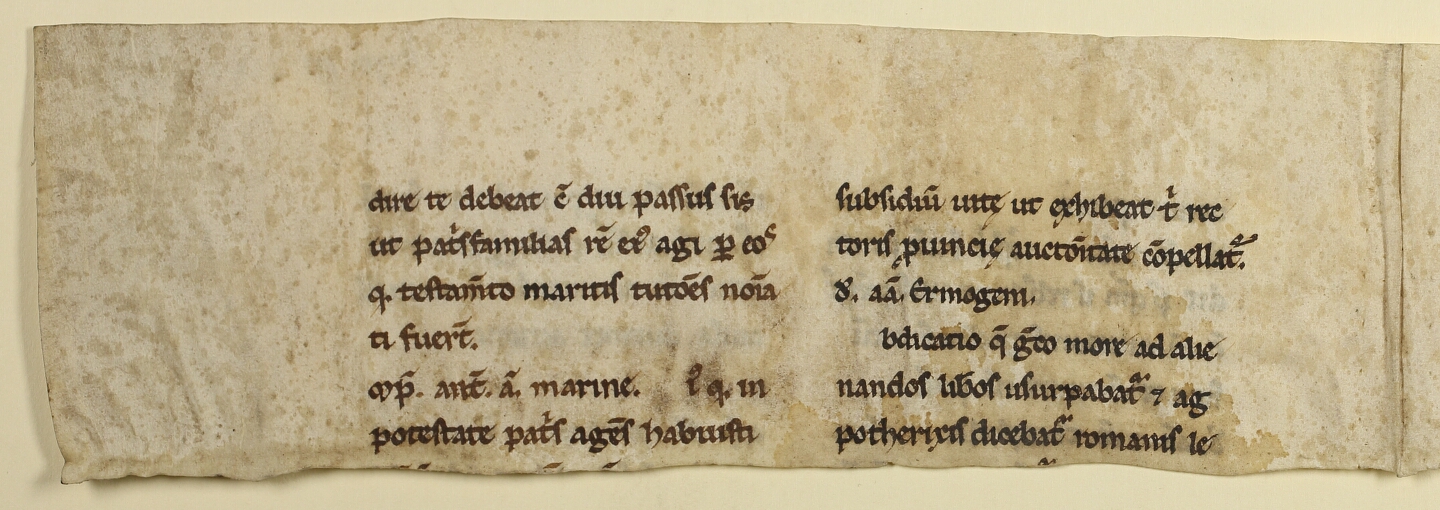 dire te debeat c̄ diu passus sis
ut pat͛sfamilias rē eꝰ agi ꝑ eoˢ
q. testam̄to mariti tutōes noīa
ti fuer̄t.
Imp̄. ant̄. ā. marine. l̓ q. in
potestate pat͛s agēs habuisti
subsidiū uitę ut exhibeat t͛ rec
toris ꝓuincię auctōritate cōpellat᷑.
d̓. aā. Ermogeni.
bdicatio q̄ ḡco more ad alie
nandos lib̄os usurpabat᷑ ⁊ ap
potherixis dicebat᷑ romanis le